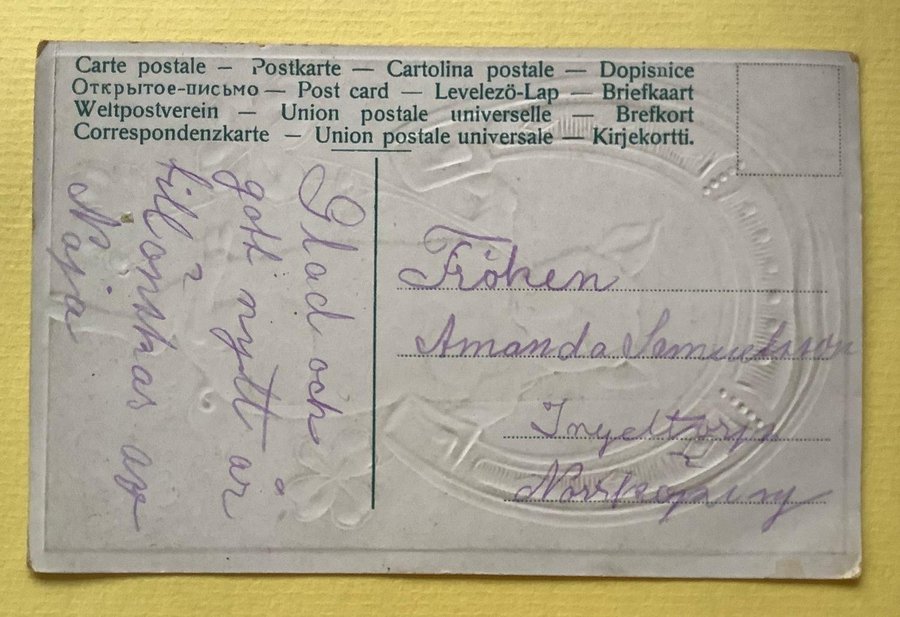 Carte postale — Postkarte — Cartolina postale — Dopisnice
Открытое-письмо — Post card — Levelező-Lap — Briefkaart
Weltpostverein — Union postale universelle — Brefkort
Correspondenzkarte — Union postale universale — Kirjekortti.
Glad och
gott nytt år
tillönskas av
Naja
Fröken
Amanda Samuelsson
Ingeltorp
Norrköping